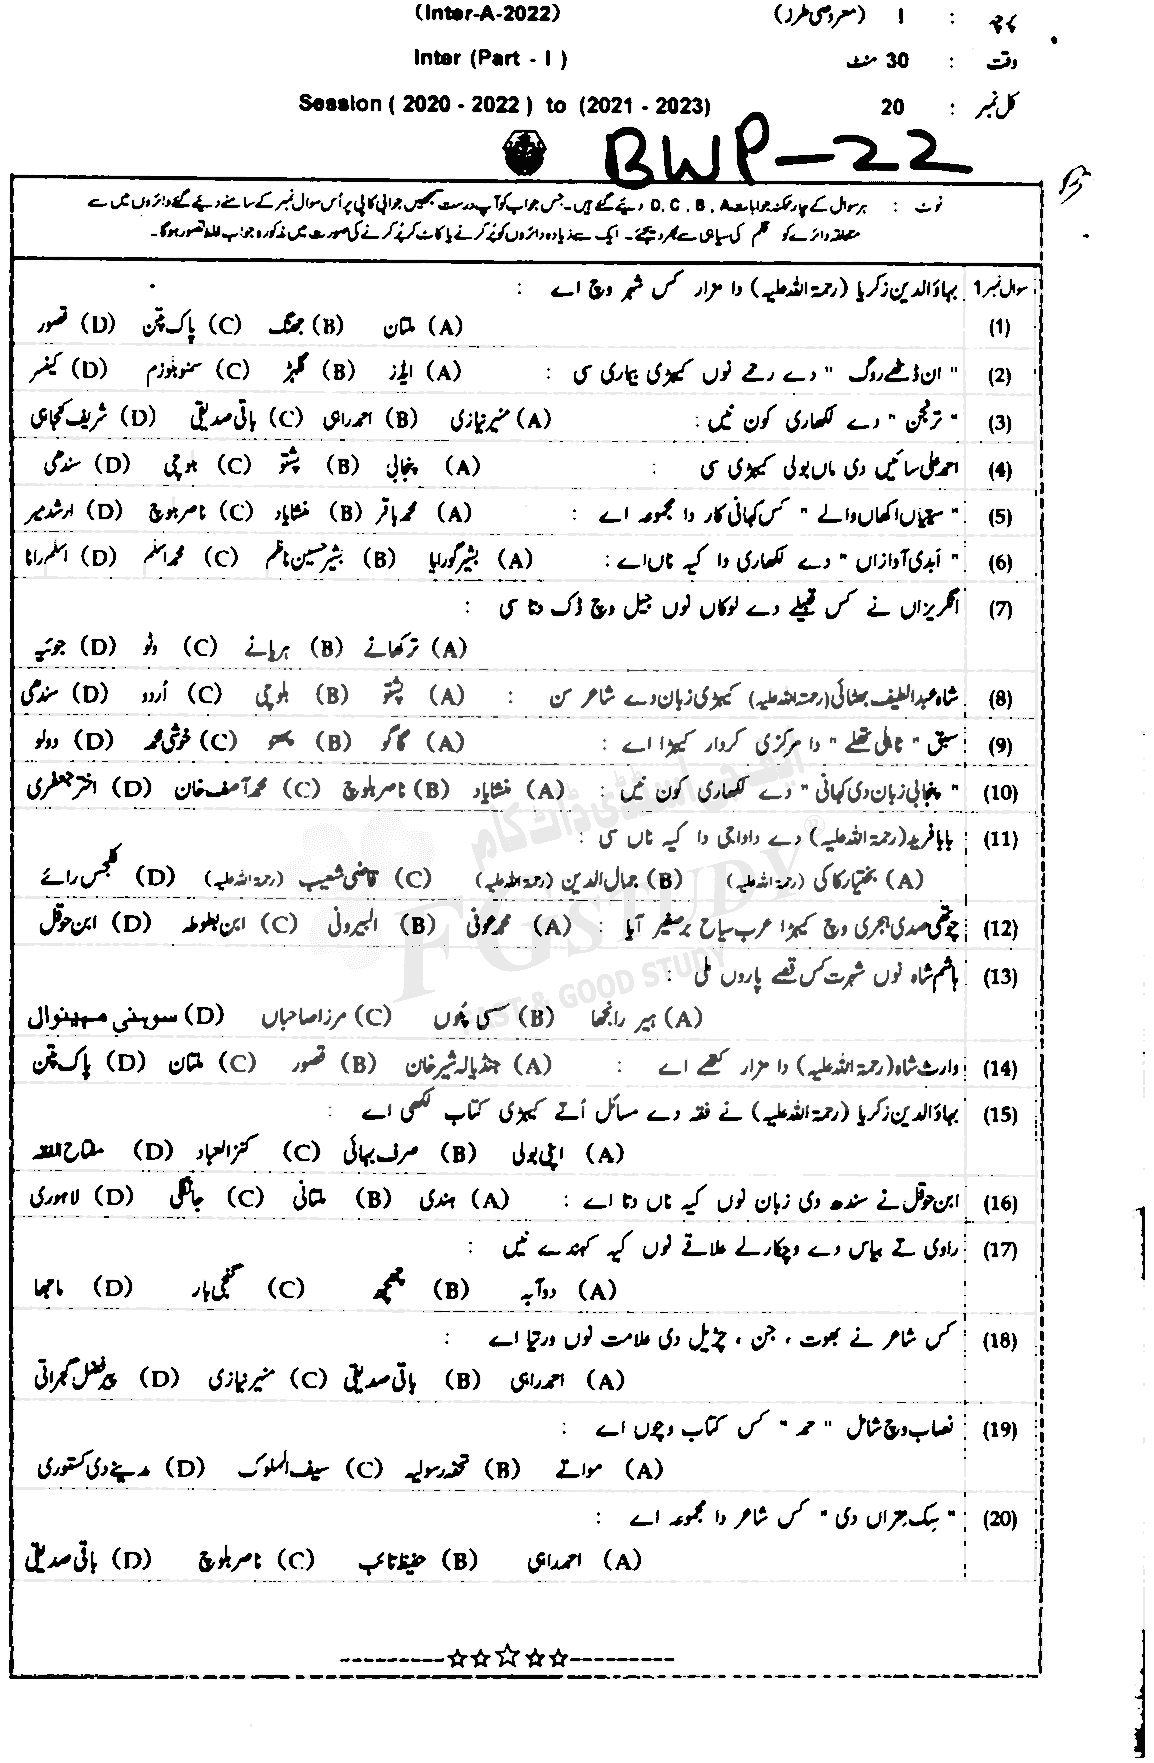 (Inter-A-2022) پرچہ : I (معروضی طرز)
Inter (Part - I) وقت : 30 منٹ
Session (2020 - 2022) to (2021 - 2023) کل نمبر : 20
BWP-22
نوٹ : ہر سوال کے چار ممکنہ جوابات D, C, B, A دیئے گئے ہیں۔ جس جواب کو آپ درست سمجھیں جوابی کاپی پر اُس سوال نمبر کے سامنے دیئے گئے دائروں میں سے
متعلقہ دائرے کو قلم کی سیاہی سے بھر دیجئے۔ ایک سے زیادہ دائروں کو پُر کرنے یا کاٹ کر پُر کرنے کی صورت میں مذکورہ جواب غلط تصور ہوگا۔
سوال نمبر 1 بہاؤالدین زکریا (رحمۃ اللہ علیہ) دا مزار کس شہر وچ اے :
(1) (A) ملتان (B) جھنگ (C) پاک پتن (D) قصور
(2) "ان ڈٹھے روگ" دے رحمے نوں کیہڑی بیماری سی : (A) ایڈز (B) گلہڑ (C) سمنوبلوزم (D) کینسر
(3) "ترنجن" دے لکھاری کون نیں : (A) منیر نیازی (B) احمد راہی (C) باقی صدیقی (D) شریف کنجاہی
(4) احمد علی سائیں دی ماں بولی کیہڑی سی : (A) پنجابی (B) پشتو (C) بلوچی (D) سندھی
(5) "ستیاں اکھاں والے" کس کہانی کار دا مجموعہ اے : (A) محمد باقر (B) منشایاد (C) ناصر بلوچ (D) ارشد میر
(6) "اَبدی آوازاں" دے لکھاری دا کیہ ناں اے : (A) بشیر گورایا (B) بشیر حسین ناظم (C) محمد اسلم (D) اسلم رانا
(7) انگریزاں نے کس قبیلے دے لوکاں نوں جیل وچ ڈک دتا سی :
(A) ترکھانے (B) ہریانے (C) وٹو (D) جوئیہ
(8) شاہ عبدالطیف بھٹائی (رحمۃ اللہ علیہ) کیہڑی زبان دے شاعر سن : (A) پشتو (B) بلوچی (C) اُردو (D) سندھی
(9) سبق "ٹاہلی تھلے" دا مرکزی کردار کیہڑا اے : (A) گاگو (B) پھتو (C) خوشی محمد (D) دولو
(10) "پنجابی زبان دی کہانی" دے لکھاری کون نیں : (A) منشایاد (B) ناصر بلوچ (C) محمد آصف خان (D) اختر جعفری
(11) بابا فرید (رحمۃ اللہ علیہ) دے داداجی دا کیہ ناں سی :
(A) بختیار کاکی (رحمۃ اللہ علیہ) (B) جمال الدین (رحمۃ اللہ علیہ) (C) قاضی شعیب (رحمۃ اللہ علیہ) (D) گلجس رائے
(12) چوتھی صدی ہجری وچ کیہڑا عرب سیاح برصغیر آیا : (A) محمد عوفی (B) البیرونی (C) ابن بطوطہ (D) ابن حوقل
(13) ہاشم شاہ نوں شہرت کس قصے پاروں ملی :
(A) ہیر رانجھا (B) سسی پنوں (C) مرزا صاحباں (D) سوہنی مہینوال
(14) وارث شاہ (رحمۃ اللہ علیہ) دا مزار کتھے اے : (A) جنڈیالہ شیر خان (B) قصور (C) ملتان (D) پاک پتن
(15) بہاؤالدین زکریا (رحمۃ اللہ علیہ) نے فقہ دے مسائل اُتے کیہڑی کتاب لکھی اے :
(A) اپنی بولی (B) صرف بہائی (C) کنزالعباد (D) مفتاح الفقہ
(16) ابن حوقل نے سندھ دی زبان نوں کیہ ناں دتا اے : (A) ہندی (B) ملتانی (C) جانگلی (D) لاہوری
(17) راوی تے بیاس دے وچکارلے علاقے نوں کیہ کہندے نیں :
(A) دوآبہ (B) چھچھ (C) گنجی بار (D) ماجھا
(18) کس شاعر نے بھوت ، جن ، چڑیل دی علامت نوں ورتیا اے :
(A) احمد راہی (B) باقی صدیقی (C) منیر نیازی (D) پیر فضل گجراتی
(19) نصاب وچ شامل "حمد" کس کتاب وچوں اے :
(A) سواتے (B) تحفہ رسولیہ (C) سیف الملوک (D) مدینے دی کستوری
(20) "سِک متراں دی" کس شاعر دا مجموعہ اے :
(A) احمد راہی (B) حفیظ تائب (C) ناصر بلوچ (D) باقی صدیقی
ایف جی اسٹڈی ڈاٹ کام
FGSTUDY®
FAST & GOOD STUDY